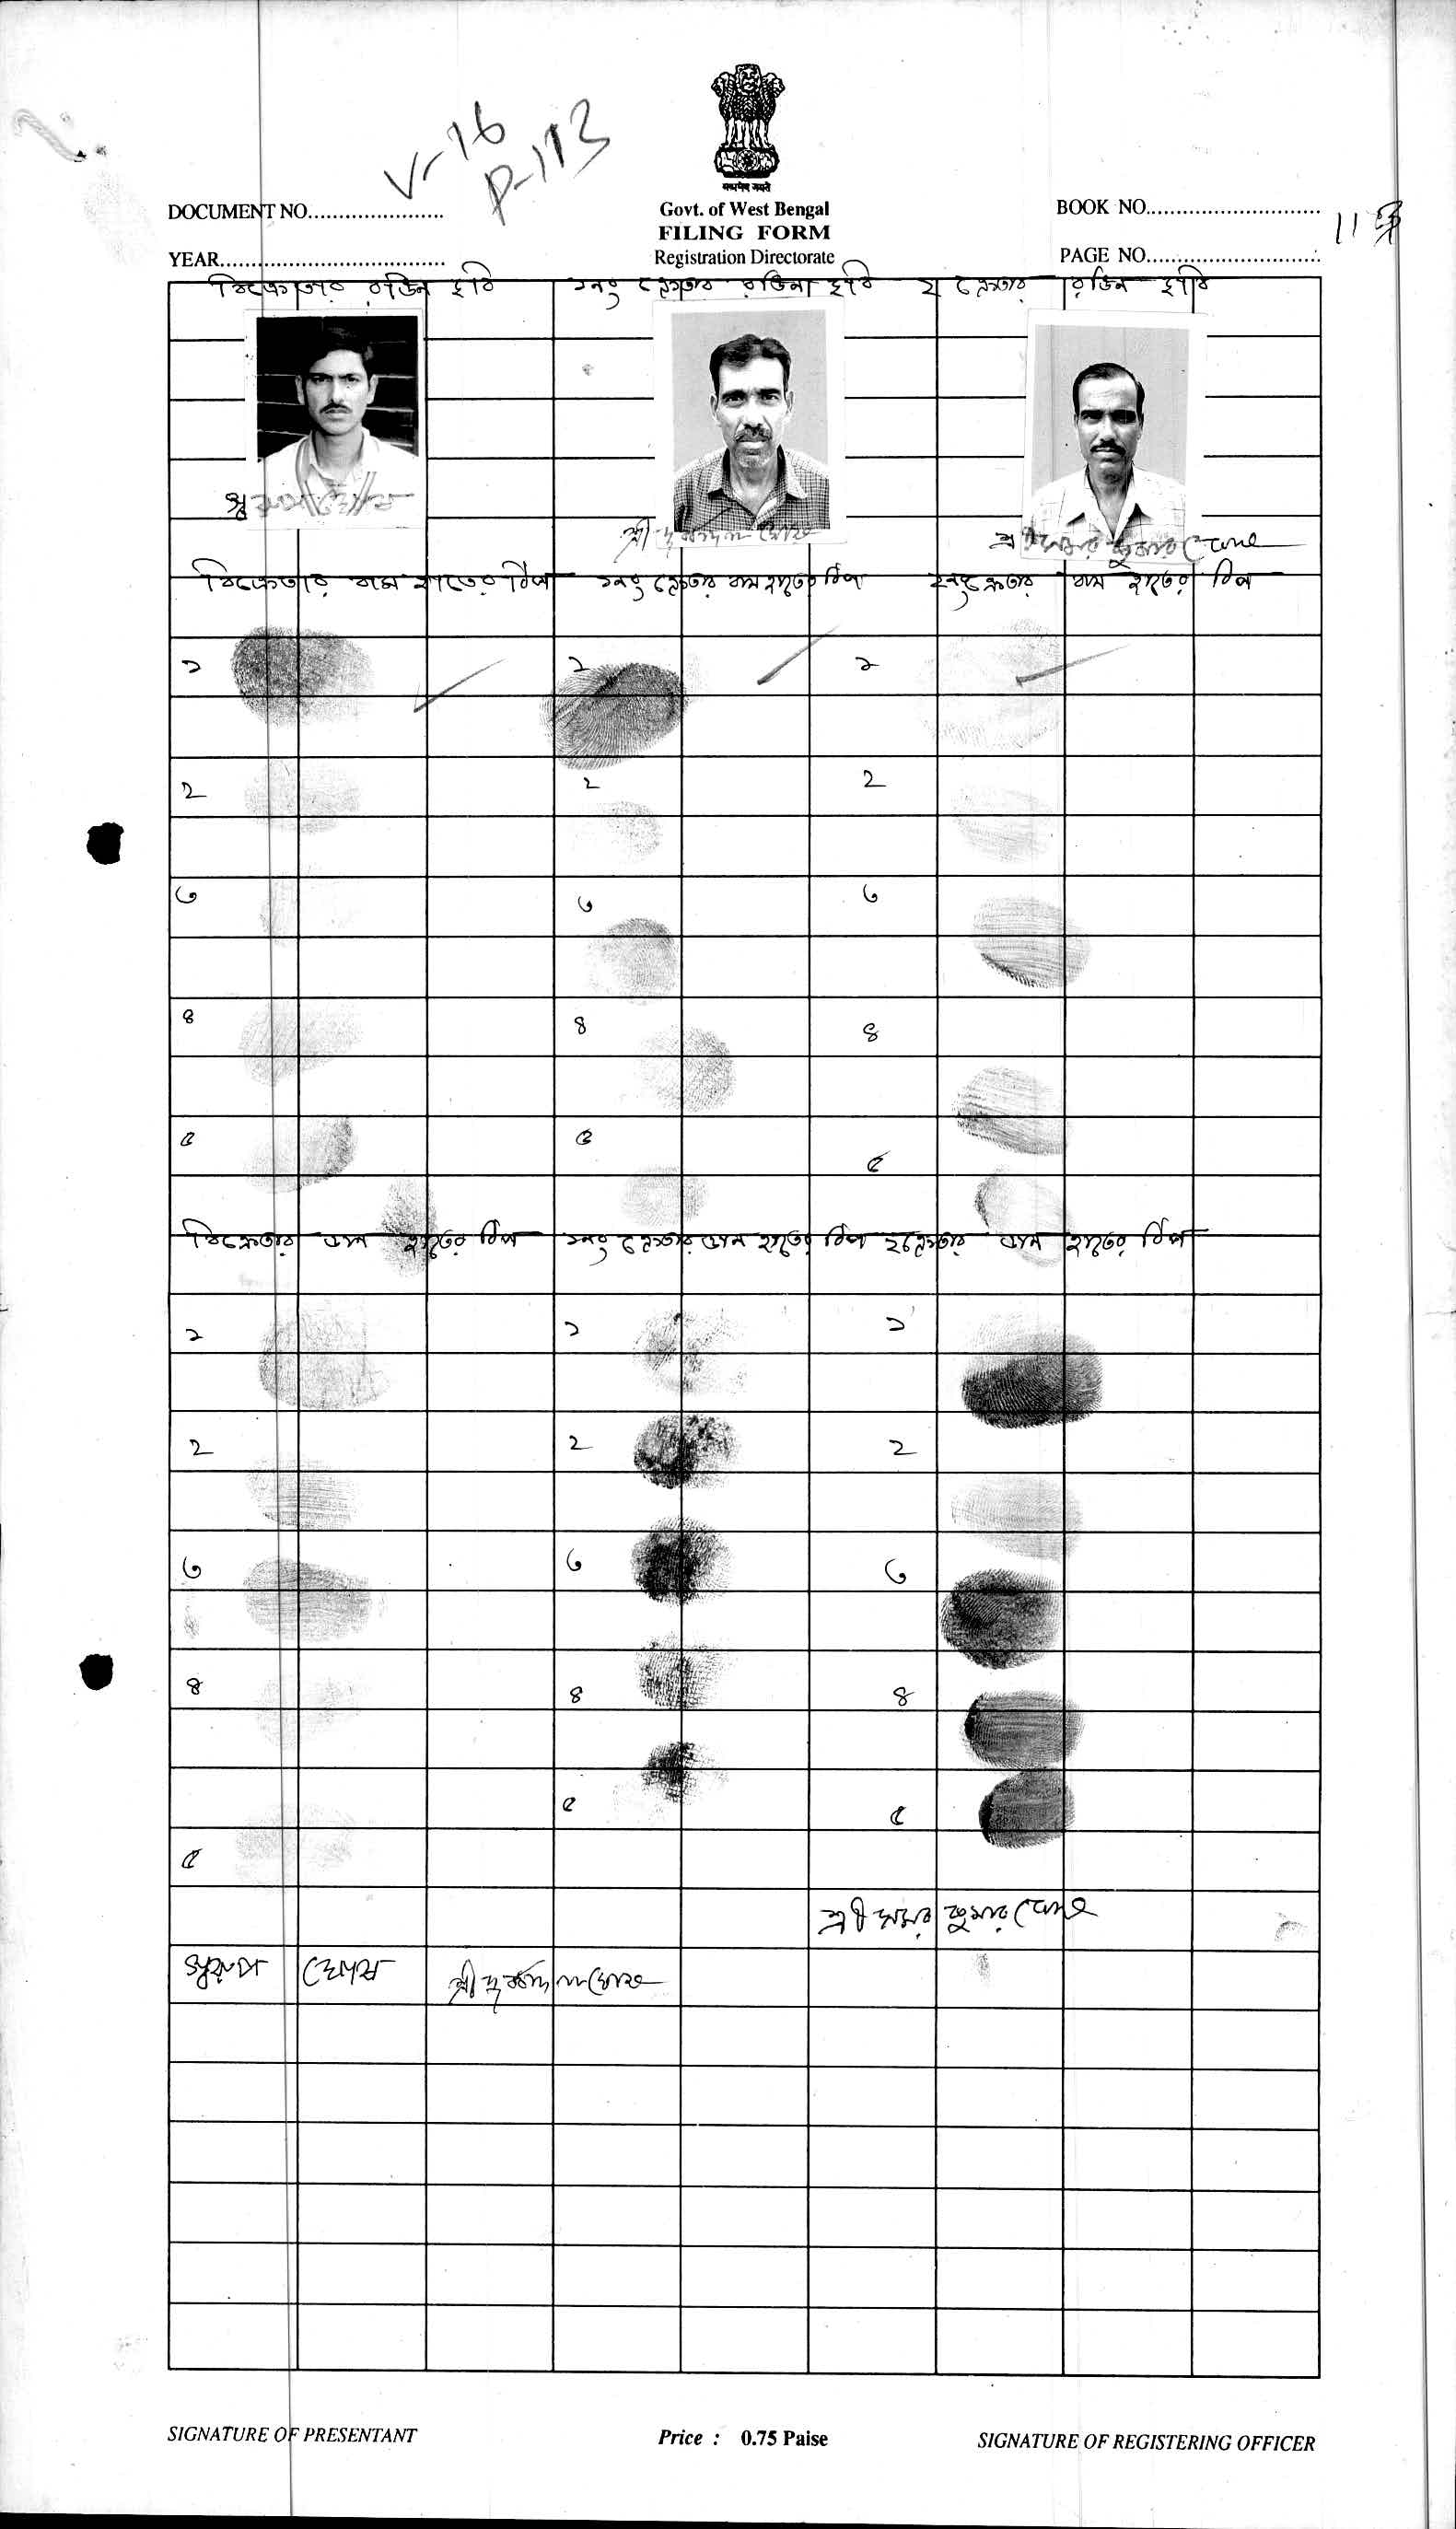 V-16
P-113
सत्यमेव जयते
DOCUMENT NO......................
Govt. of West Bengal
BOOK NO.............................
FILING FORM
YEAR.....................................
Registration Directorate
PAGE NO.............................
বিক্রেতার রঙিন ছবি ১নং ক্রেতার রঙিন ছবি ২ ক্রেতার রঙিন ছবি
শ্রী সমর কুমার ঘোষ
বিক্রেতার বাম হাতের টিপ ১নং ক্রেতার বাম হাতের টিপ ২নং ক্রেতার বাম হাতের টিপ
১ ১ ১
২ ২ ২
৩ ৩ ৩
৪ ৪ ৪
৫ ৫ ৫
বিক্রেতার ডান হাতের টিপ ১নং ক্রেতার ডান হাতের টিপ ২ ক্রেতার ডান হাতের টিপ
১ ১ ১
২ ২ ২
৩ ৩ ৩
৪ ৪ ৪
৫ ৫ ৫
শ্রী সমর কুমার ঘোষ
স্বরূপ ঘোষ শ্রী ঘোষ
SIGNATURE OF PRESENTANT
Price : 0.75 Paise
SIGNATURE OF REGISTERING OFFICER